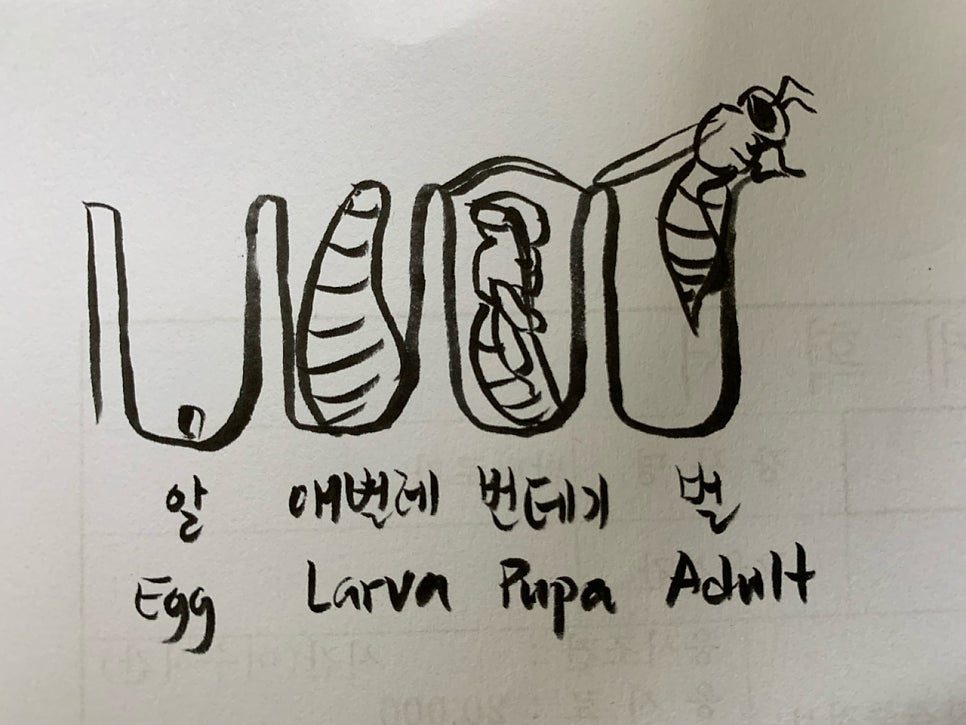 알 애벌레 번데기 벌
Egg Larva Pupa Adult
20,000